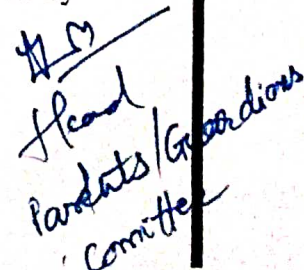 Head
Parents/Guardians
Comittee